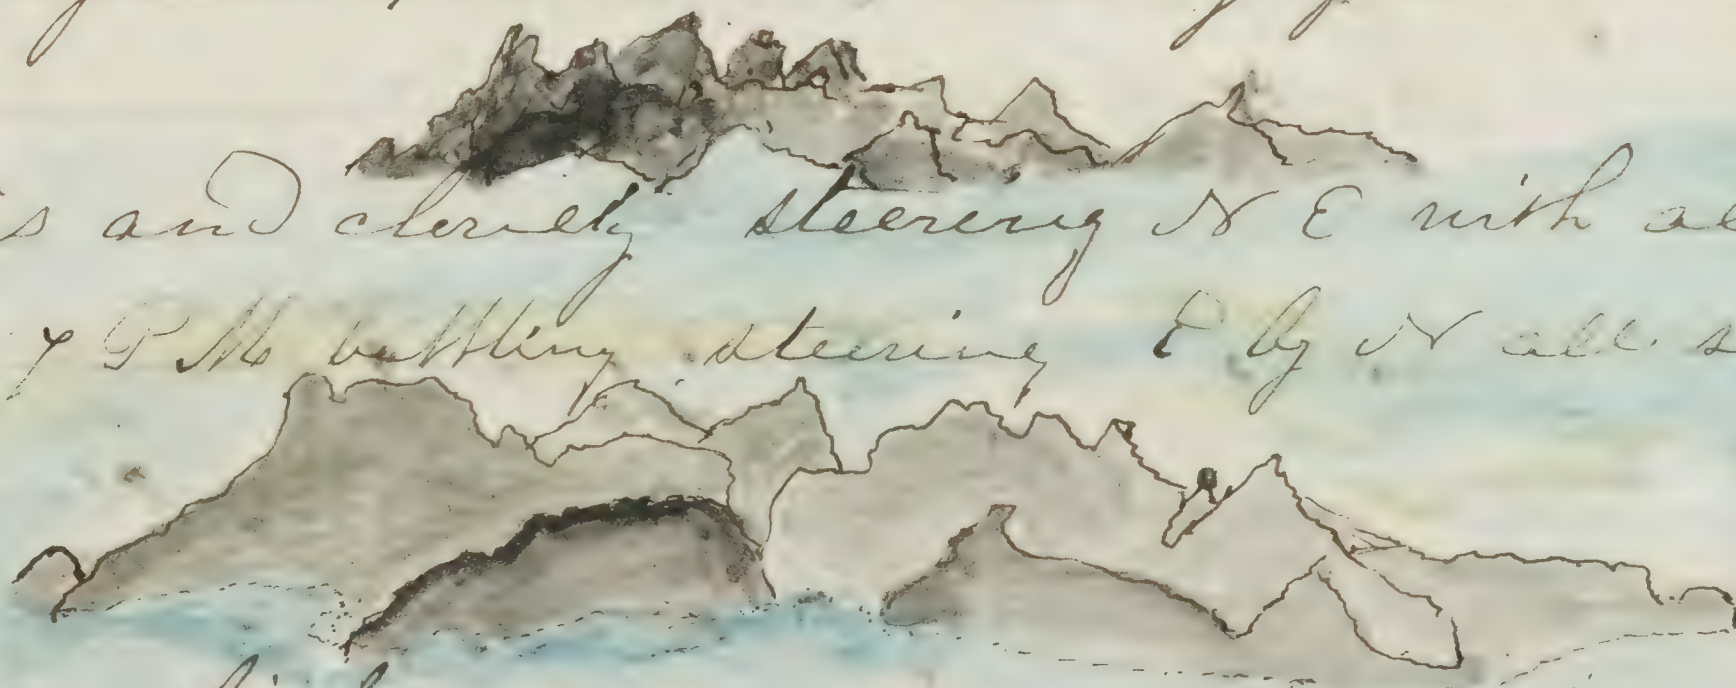 s and clovely steering N E with al
7 P M battling steering E by N all s